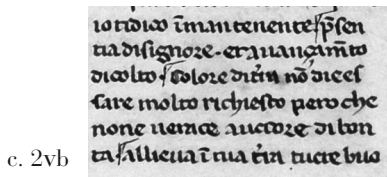 io ti dico ĩmantenente p̃sen
tia di signore · et auançam̃to
di colto · Colore di t̃ra nõ dice es
sare molto richiesto pero che
none uerace auctore di bon
ta allieua ĩ tua t̃ra tucte buo
c. 2vb